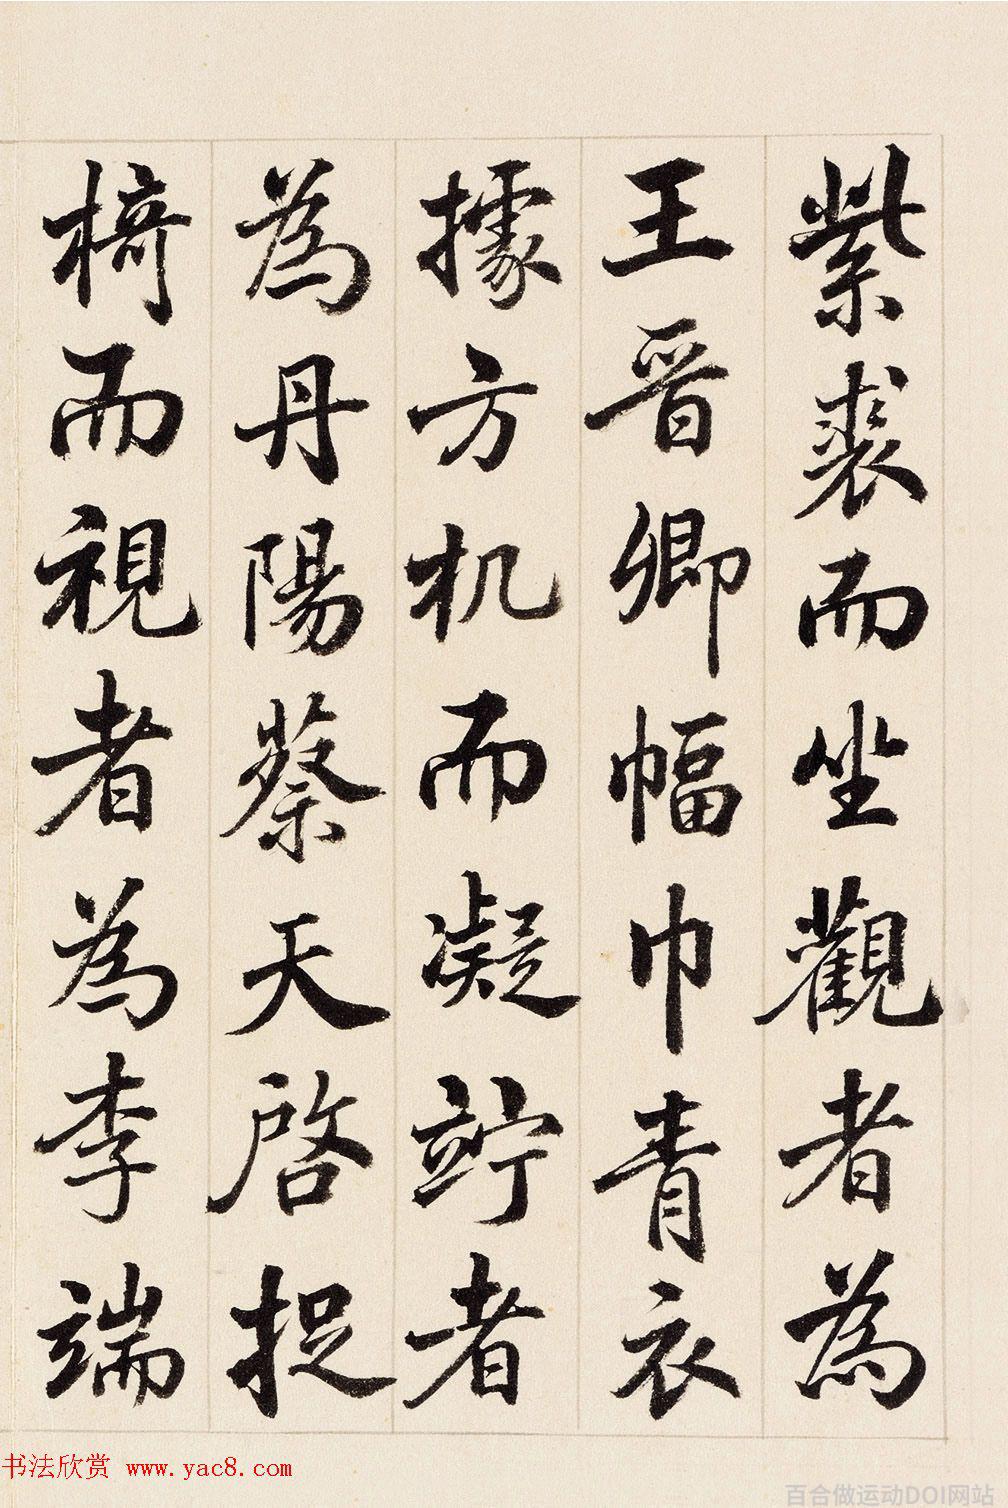 紫裘而坐觀者為
王晉卿幅巾青衣
據方机而凝竚者
為丹陽蔡天啓捉
椅而視者為李端
书法欣赏 www.yac8.com
百合做运动DOI网站